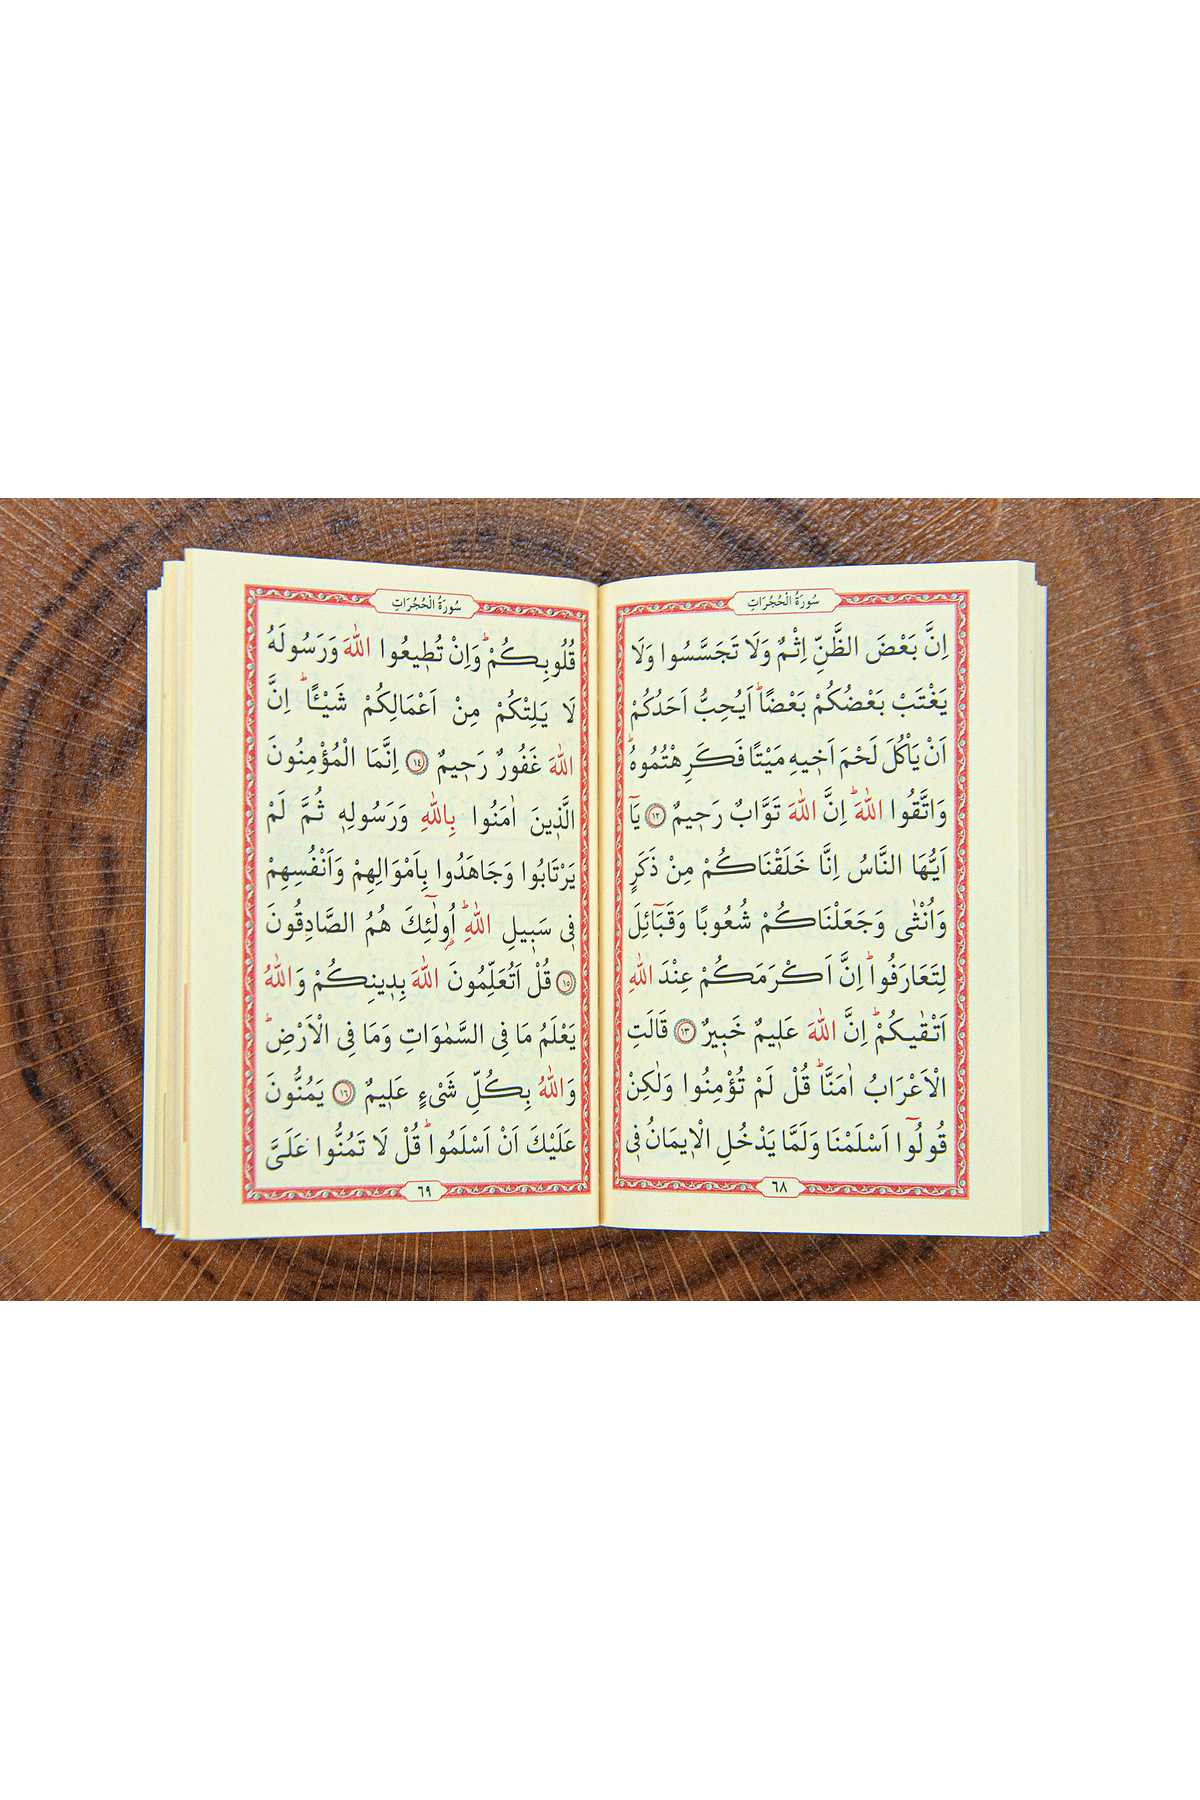 سُورَةُ الْحُجُرَاتِ
اِنَّ بَعْضَ الظَّنِّ اِثْمٌ وَلَا تَجَسَّسُوا وَلَا
يَغْتَبْ بَعْضُكُمْ بَعْضًاۜ اَيُحِبُّ اَحَدُكُمْ
اَنْ يَاْكُلَ لَحْمَ اَخ۪يهِ مَيْتًا فَكَرِهْتُمُوهُۜ
وَاتَّقُوا اللّٰهَۜ اِنَّ اللّٰهَ تَوَّابٌ رَح۪يمٌ ﴿١٢﴾ يَٓا
اَيُّهَا النَّاسُ اِنَّا خَلَقْنَاكُمْ مِنْ ذَكَرٍ
وَاُنْثٰى وَجَعَلْنَاكُمْ شُعُوبًا وَقَبَٓائِلَ
لِتَعَارَفُواۜ اِنَّ اَكْرَمَكُمْ عِنْدَ اللّٰهِ
اَتْقٰيكُمْۜ اِنَّ اللّٰهَ عَل۪يمٌ خَب۪يرٌ ﴿١٣﴾ قَالَتِ
الْاَعْرَابُ اٰمَنَّاۜ قُلْ لَمْ تُؤْمِنُوا وَلٰكِنْ
قُولُٓوا اَسْلَمْنَا وَلَمَّا يَدْخُلِ الْا۪يمَانُ ف۪ي
٦٨
سُورَةُ الْحُجُرَاتِ
قُلُوبِكُمْۜ وَاِنْ تُط۪يعُوا اللّٰهَ وَرَسُولَهُ
لَا يَلِتْكُمْ مِنْ اَعْمَالِكُمْ شَيْـًٔاۜ اِنَّ
اللّٰهَ غَفُورٌ رَح۪يمٌ ﴿١٤﴾ اِنَّمَا الْمُؤْمِنُونَ
الَّذ۪ينَ اٰمَنُوا بِاللّٰهِ وَرَسُولِه۪ ثُمَّ لَمْ
يَرْتَابُوا وَجَاهَدُوا بِاَمْوَالِهِمْ وَاَنْفُسِهِمْ
ف۪ي سَب۪يلِ اللّٰهِۜ اُو۬لٰٓئِكَ هُمُ الصَّادِقُونَ
﴿١٥﴾ قُلْ اَتُعَلِّمُونَ اللّٰهَ بِد۪ينِكُمْ وَاللّٰهُ
يَعْلَمُ مَا فِي السَّمٰوَاتِ وَمَا فِي الْاَرْضِۜ
وَاللّٰهُ بِكُلِّ شَيْءٍ عَل۪يمٌ ﴿١٦﴾ يَمُنُّونَ
عَلَيْكَ اَنْ اَسْلَمُواۜ قُلْ لَا تَمُنُّوا عَلَيَّ
٦٩